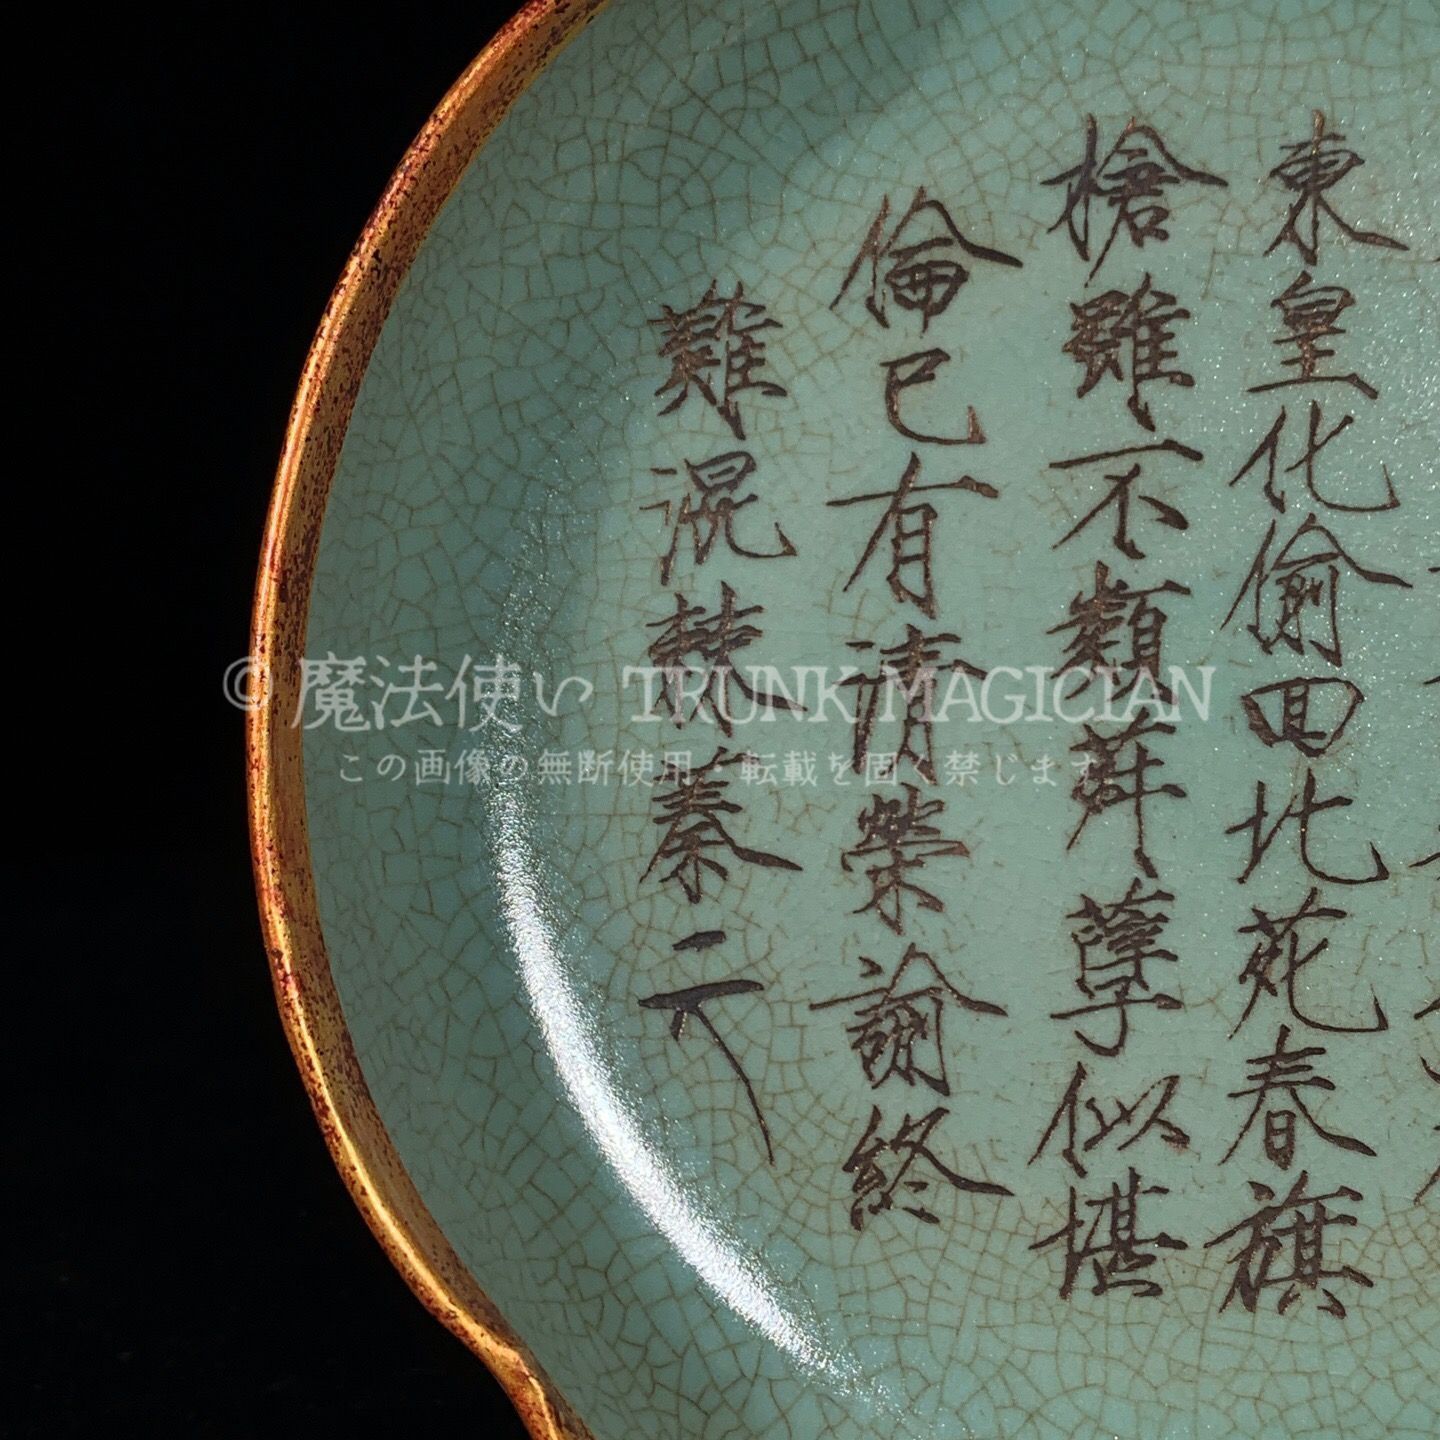 東皇化偷回此苑春旗
槍雖不類舜孽似堪
倫已有清榮諭終
難混棘蓁二
© 魔法使い TRUNK MAGICIAN
この画像の無断使用・転載を固く禁じます